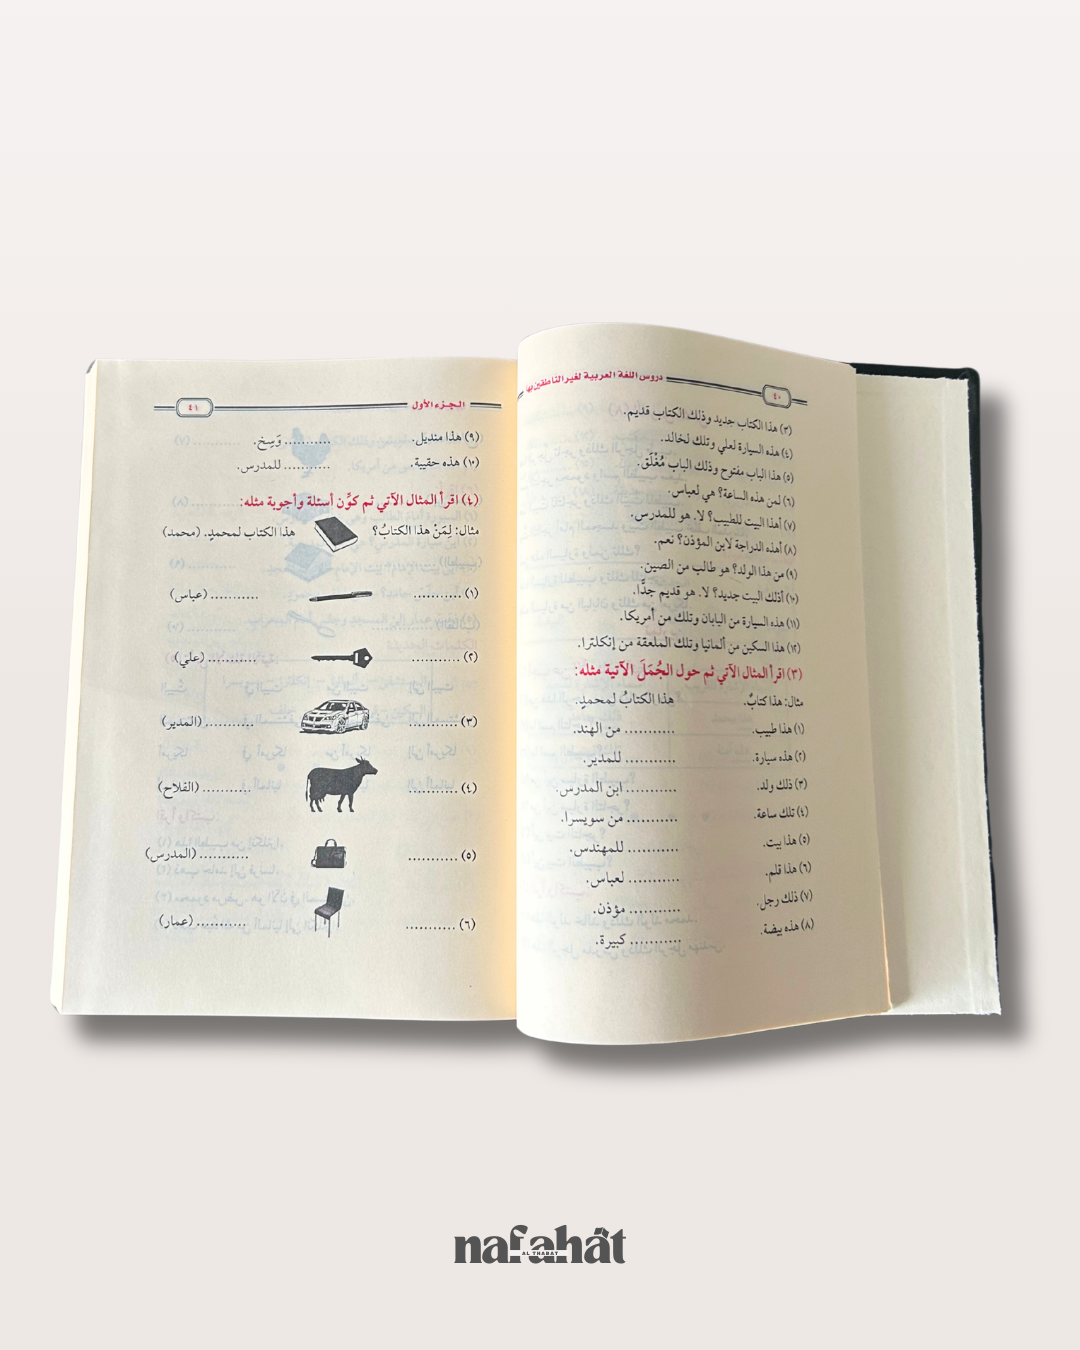 ٤٠
دروس اللغة العربية لغير الناطقين بها
(٣) هذا الكتاب جديد وذلك الكتاب قديم.
(٤) هذه السيارة لعلي وتلك لخالد.
(٥) هذا الباب مفتوح وذلك الباب مُغْلَق.
(٦) لمن هذه الساعة؟ هي لعباس.
(٧) أهذا البيت للطبيب؟ لا. هو للمدرس.
(٨) أهذه الدراجة لابن المؤذن؟ نعم.
(٩) من هذا الولد؟ هو طالب من الصين.
(١٠) أذلك البيت جديد؟ لا. هو قديم جدًّا.
(١١) هذه السيارة من اليابان وتلك من أمريكا.
(١٢) هذا السكين من ألمانيا وتلك الملعقة من إنكلترا.
(٣) اقرأ المثال الآتي ثم حول الجُمَلَ الآتية مثله:
مثال: هذا كتابٌ. هذا الكتابُ لمحمدٍ.
(١) هذا طبيب. ........... من الهند.
(٢) هذه سيارة. ........... للمدير.
(٣) ذلك ولد. ........... ابن المدرس.
(٤) تلك ساعة. ........... من سويسرا.
(٥) هذا بيت. ........... للمهندس.
(٦) هذا قلم. ........... لعباس.
(٧) ذلك رجل. ........... مؤذن.
(٨) هذه بيضة. ........... كبيرة.
الجزء الأول
٤١
(٩) هذا منديل. ........... وَسِخ.
(١٠) هذه حقيبة. ........... للمدرس.
(٤) اقرأ المثال الآتي ثم كوِّن أسئلة وأجوبة مثله:
مثال: لِمَنْ هذا الكتابُ؟ هذا الكتاب لمحمدٍ. (محمد)
(١) ........... ........... (عباس)
(٢) ........... ........... (علي)
(٣) ........... ........... (المدير)
(٤) ........... ........... (الفلاح)
(٥) ........... ........... (المدرس)
(٦) ........... ........... (عمار)
nafahât
AL THABAT